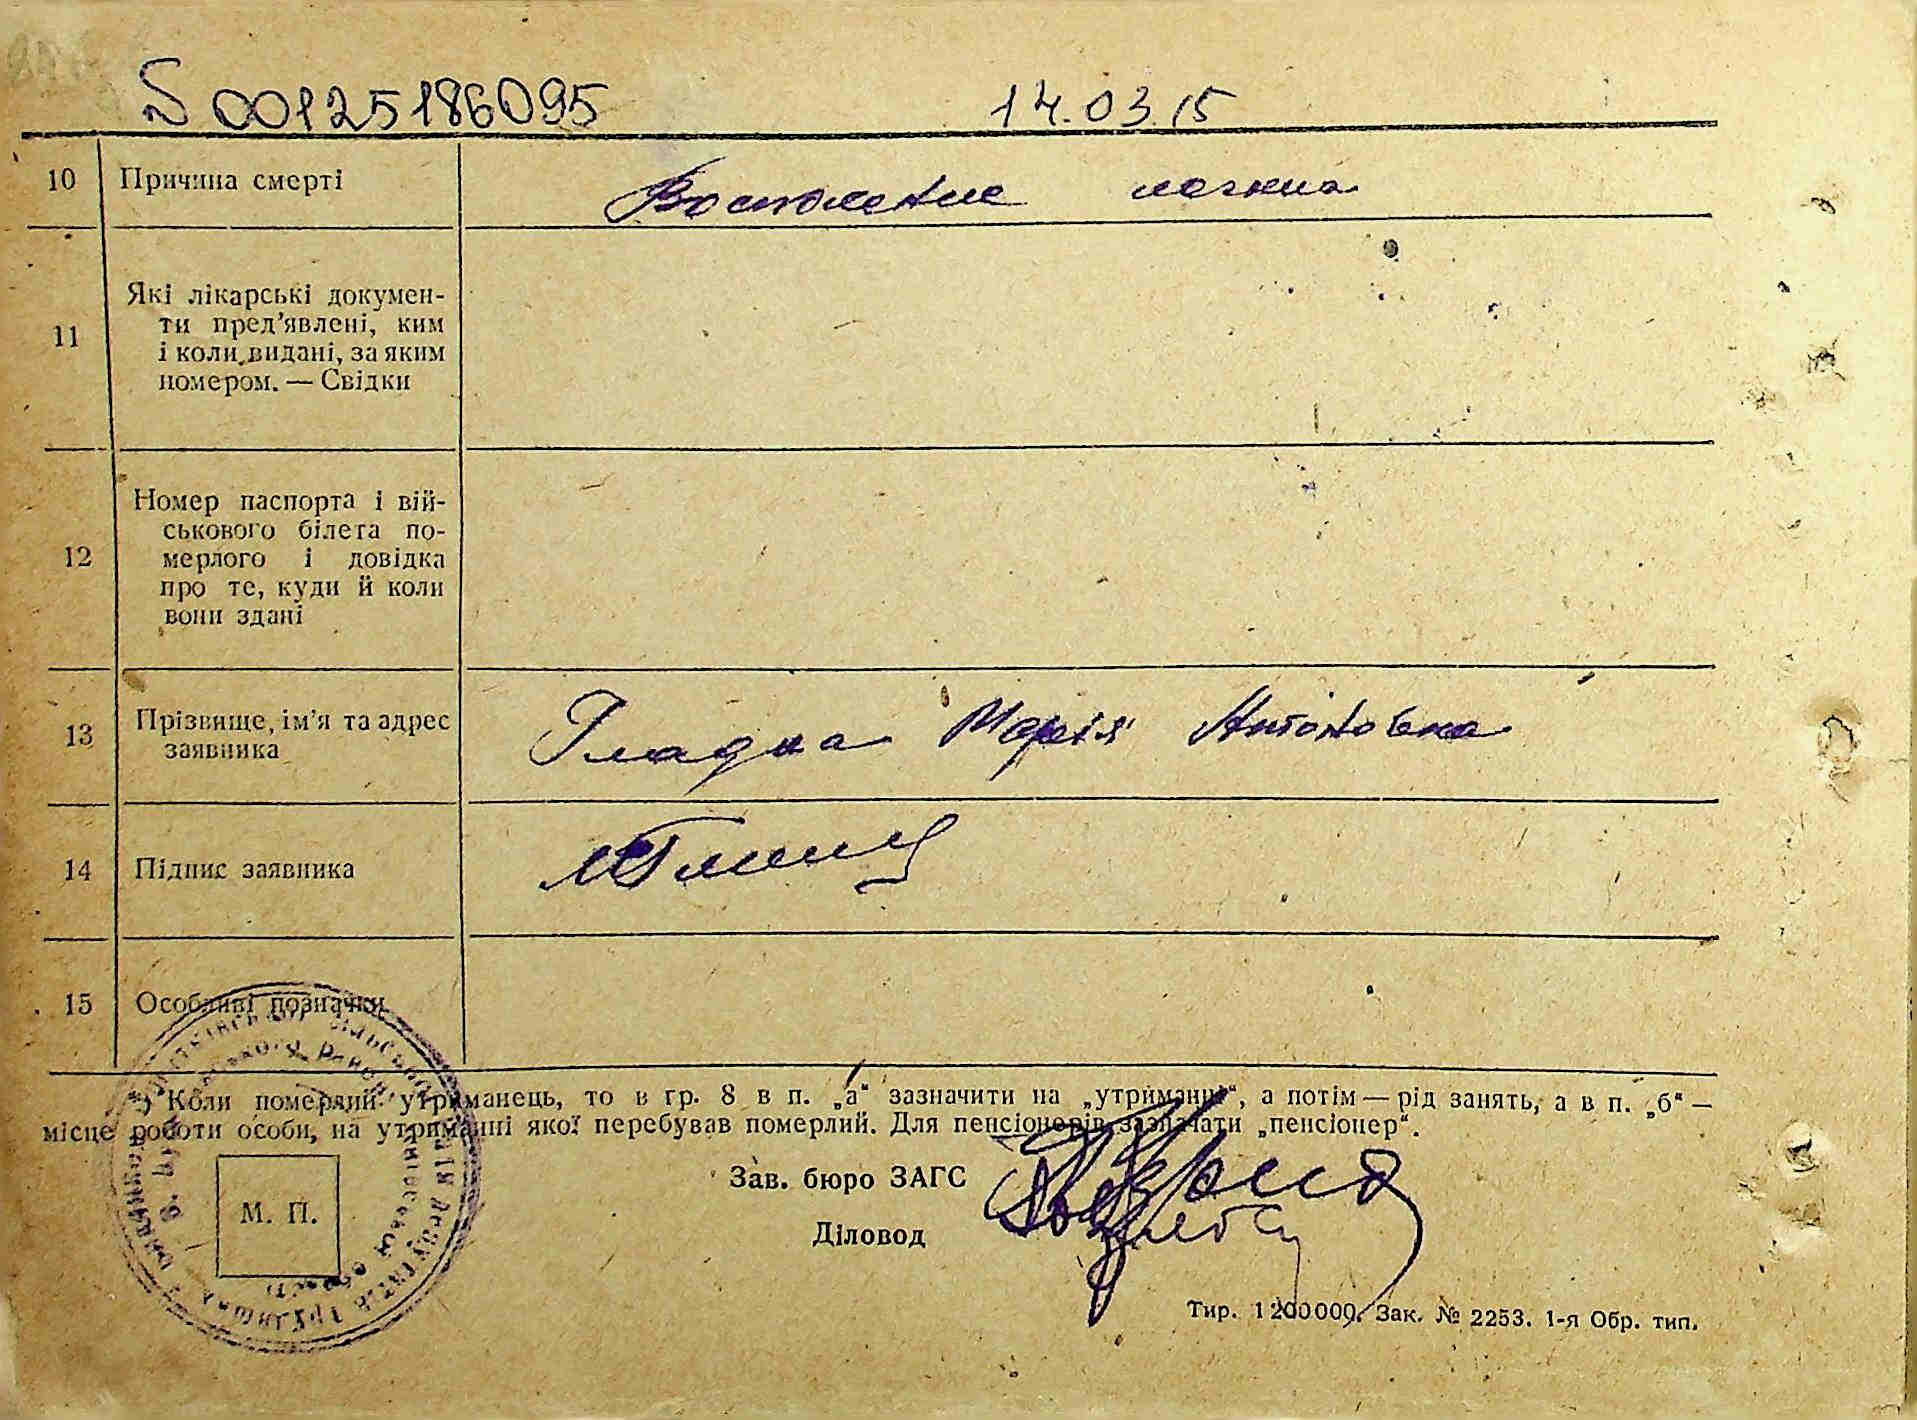 S00125186095 14.03.15
10 Причина смерті Воспаление легких
11 Які лікарські докумен-
ти пред’явлені, ким
і коли видані, за яким
номером. — Свідки
12 Номер паспорта і вій-
ськового білета по-
мерлого і довідка
про те, куди й коли
вони здані
13 Прізвище, ім’я та адрес
заявника
Гладка Марія Антоновна
14 Підпис заявника
15 Особливі позначки
*) Коли померлий утриманець, то в гр. 8 в п. „а“ зазначити на „утриманні“, а потім — рід занять, а в п. „б“ —
місце роботи особи, на утриманні якої перебував померлий. Для пенсіонерів зазначати „пенсіонер“.
Зав. бюро ЗАГС
Діловод
М. П.
Тир. 1200000. Зак. № 2253. 1-я Обр. тип.